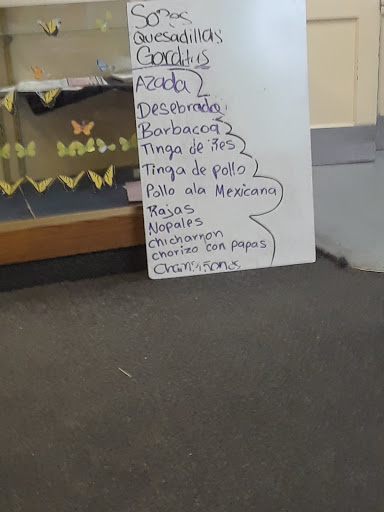 Sopes
Quesadillas
Gorditas
Azada
Desebrada
Barbacoa
Tinga de Res
Tinga de pollo
Pollo ala Mexicana
Rajas
Nopales
chicharron
chorizo con papas
Champiñones